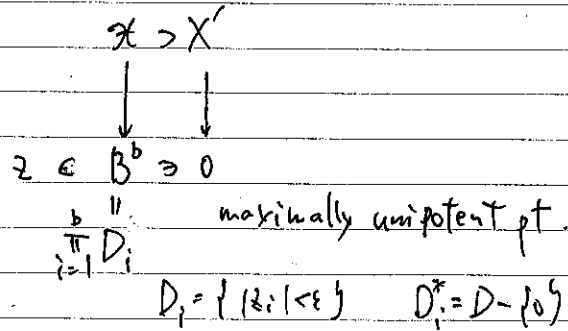 𝔛 ⊃ X'
↓ ↓
z ∈ B^b ∋ 0
||
∏_{i=1}^{b} D_i maximally unipotent pt.
D_i = { |z_i| < ε } D_i^* = D - {0}